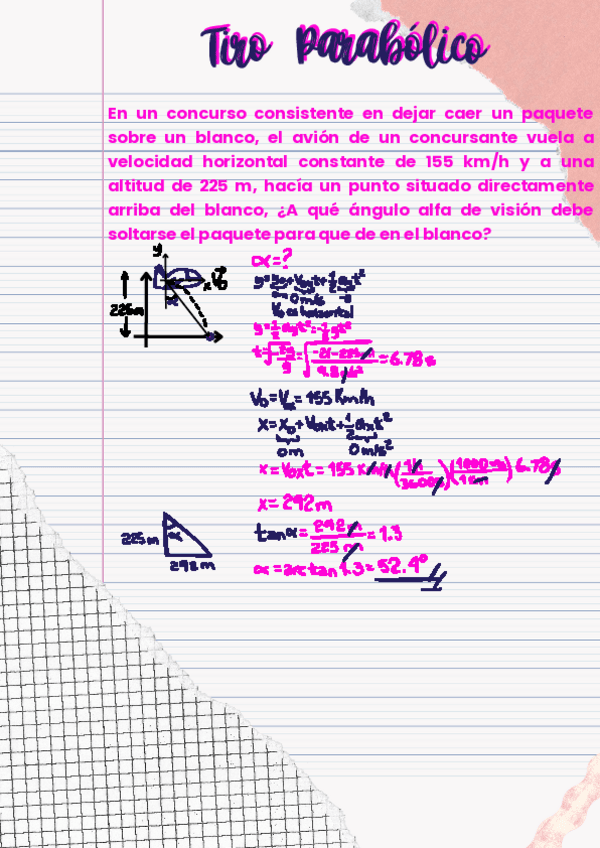 Tiro Parabólico
En un concurso consistente en dejar caer un paquete
sobre un blanco, el avión de un concursante vuela a
velocidad horizontal constante de 155 km/h y a una
altitud de 225 m, hacía un punto situado directamente
arriba del blanco, ¿A qué ángulo alfa de visión debe
soltarse el paquete para que de en el blanco?
α=?
y
x
V₀
α
225m
y=y₀+V₀yt+½ayt²
0m/s -g
V₀ es horizontal
y=½ayt²=-½gt²
=6.78s
V₀=V₀x=155 Km/h
x=x₀+V₀xt+½axt²
0m 0m/s²
x=V₀xt=155 Km/h(1h/3600s)(1000m/1km)6.78s
x=292m
tanα=292m/225m=1.3
α=arctan 1.3=52.4°
225m
α
292m